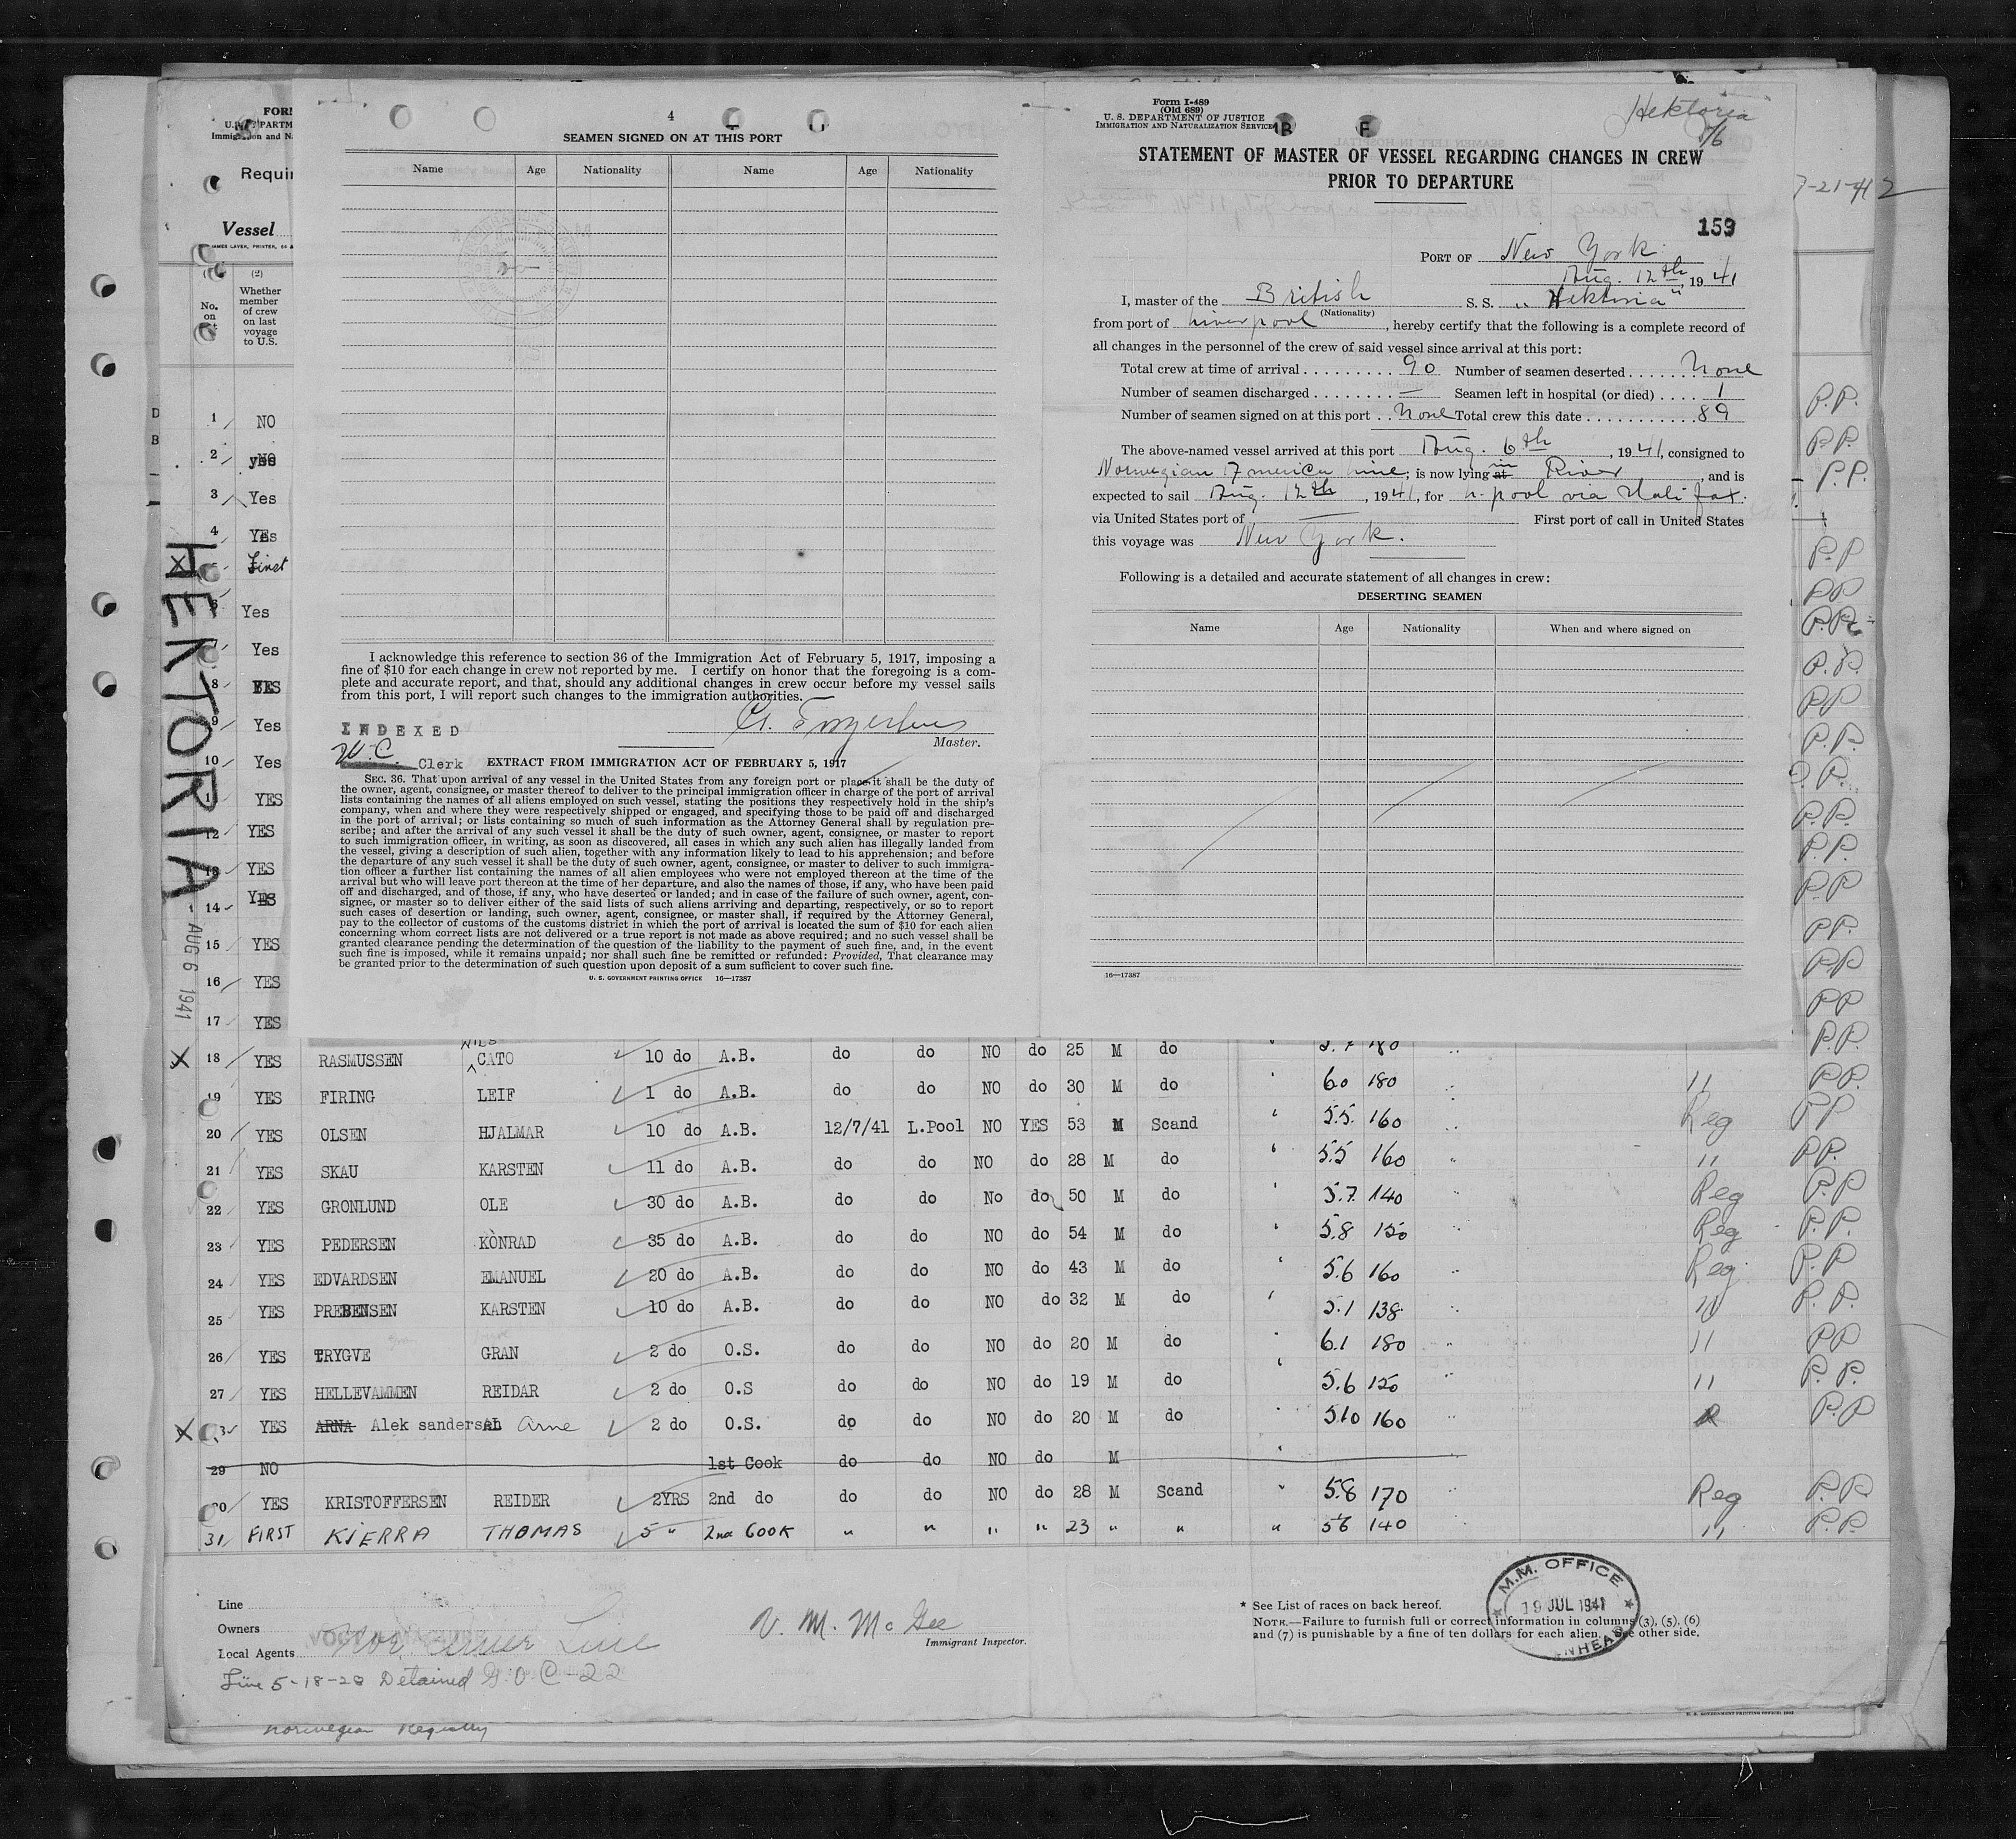 4
SEAMEN SIGNED ON AT THIS PORT
Name Age Nationality Name Age Nationality
I acknowledge this reference to section 36 of the Immigration Act of February 5, 1917, imposing a
fine of $10 for each change in crew not reported by me. I certify on honor that the foregoing is a com-
plete and accurate report, and that, should any additional changes in crew occur before my vessel sails
from this port, I will report such changes to the immigration authorities.
INDEXED
Master.
Clerk
EXTRACT FROM IMMIGRATION ACT OF FEBRUARY 5, 1917
SEC. 36. That upon arrival of any vessel in the United States from any foreign port or place it shall be the duty of
the owner, agent, consignee, or master thereof to deliver to the principal immigration officer in charge of the port of arrival
lists containing the names of all aliens employed on such vessel, stating the positions they respectively hold in the ship's
company, when and where they were respectively shipped or engaged, and specifying those to be paid off and discharged
in the port of arrival; or lists containing so much of such information as the Attorney General shall by regulation pre-
scribe; and after the arrival of any such vessel it shall be the duty of such owner, agent, consignee, or master to report
to such immigration officer, in writing, as soon as discovered, all cases in which any such alien has illegally landed from
the vessel, giving a description of such alien, together with any information likely to lead to his apprehension; and before
the departure of any such vessel it shall be the duty of such owner, agent, consignee, or master to deliver to such immigra-
tion officer a further list containing the names of all alien employees who were not employed thereon at the time of the
arrival but who will leave port thereon at the time of her departure, and also the names of those, if any, who have been paid
off and discharged, and of those, if any, who have deserted or landed; and in case of the failure of such owner, agent, con-
signee, or master so to deliver either of the said lists of such aliens arriving and departing, respectively, or so to report
such cases of desertion or landing, such owner, agent, consignee, or master shall, if required by the Attorney General,
pay to the collector of customs of the customs district in which the port of arrival is located the sum of $10 for each alien
concerning whom correct lists are not delivered or a true report is not made as above required; and no such vessel shall be
granted clearance pending the determination of the question of the liability to the payment of such fine, and, in the event
such fine is imposed, while it remains unpaid; nor shall such fine be remitted or refunded: Provided, That clearance may
be granted prior to the determination of such question upon deposit of a sum sufficient to cover such fine.
U. S. GOVERNMENT PRINTING OFFICE 16—17387
Form I-489
(Old 689)
U. S. DEPARTMENT OF JUSTICE
IMMIGRATION AND NATURALIZATION SERVICE
Hektoria
8/6
STATEMENT OF MASTER OF VESSEL REGARDING CHANGES IN CREW
PRIOR TO DEPARTURE
159
PORT OF New York
Aug. 12th, 1941
I, master of the British S. S. "Hektoria"
(Nationality)
from port of Liverpool, hereby certify that the following is a complete record of
all changes in the personnel of the crew of said vessel since arrival at this port:
Total crew at time of arrival 90 Number of seamen deserted None
Number of seamen discharged — Seamen left in hospital (or died) 1
Number of seamen signed on at this port None Total crew this date 89
The above-named vessel arrived at this port Aug. 6th, 1941, consigned to
Norwegian America Line, is now lying at in River, and is
expected to sail Aug. 12th, 1941, for L-pool via Halifax.
via United States port of — First port of call in United States
this voyage was New York.
Following is a detailed and accurate statement of all changes in crew:
DESERTING SEAMEN
Name Age Nationality When and where signed on
16—17387
Requir
Vessel
(2)
No. on
Whether
member
of crew
on last
voyage
to U.S.
HEKTORIA
AUG 6 1941
1 NO
2 yes
3 Yes
4 Yes
First
Yes
7 Yes
8 YES
9 Yes
10 Yes
YES
12 YES
YES
14 YES
15 YES
16 YES
17 YES
X 18 YES RASMUSSEN NILS CATO 10 do A.B. do do NO do 25 M do 180
19 YES FIRING LEIF 1 do A.B. do do NO do 30 M do 6.0 180 11 P.P.
20 YES OLSEN HJALMAR 10 do A.B. 12/7/41 L.Pool NO YES 53 M Scand 5.5. 160 Reg P.P
21 YES SKAU KARSTEN 11 do A.B. do do NO do 28 M do 5.5 160 11 P.P.
22 YES GRONLUND OLE 30 do A.B. do do No do 50 M do 5.7 140 Reg P.P
23 YES PEDERSEN KONRAD 35 do A.B. do do NO do 54 M do 5.8 150 Reg P.P.
24 YES EDVARDSEN EMANUEL 20 do A.B. do do NO do 43 M do 5.6 160 Reg. P.P
25 YES PREBENSEN KARSTEN 10 do A.B. do do NO do 32 M do 5.1 138 11 P.P.
26 YES TRYGVE GRAN 2 do O.S. do do NO do 20 M do 6.1 180 11 PP
27 YES HELLEVAMMEN REIDAR 2 do O.S do do NO do 19 M do 5.6 150 11 P.P.
X YES ARNA Alek sandersen Arne 2 do O.S. do do NO do 20 M do 5.10 160 P.P
29 NO 1st Cook do do NO do M
30 YES KRISTOFFERSEN REIDER 2YRS 2nd do do do NO do 28 M Scand 5.8 170 Reg P.P.
31 FIRST KIERRA THOMAS 5 " 2nd COOK " " " " 23 " " " 5.6 140 11 P.P.
Line
Owners
Local Agents Nor. Amer Line
V. M. McGee
Immigrant Inspector.
* See List of races on back hereof.
NOTE.—Failure to furnish full or correct information in columns (3), (5), (6)
and (7) is punishable by a fine of ten dollars for each alien. See other side.
M.M. OFFICE
19 JUL 1941
Line 5-18-28 Detained G.O.C-22
Norwegian Registry